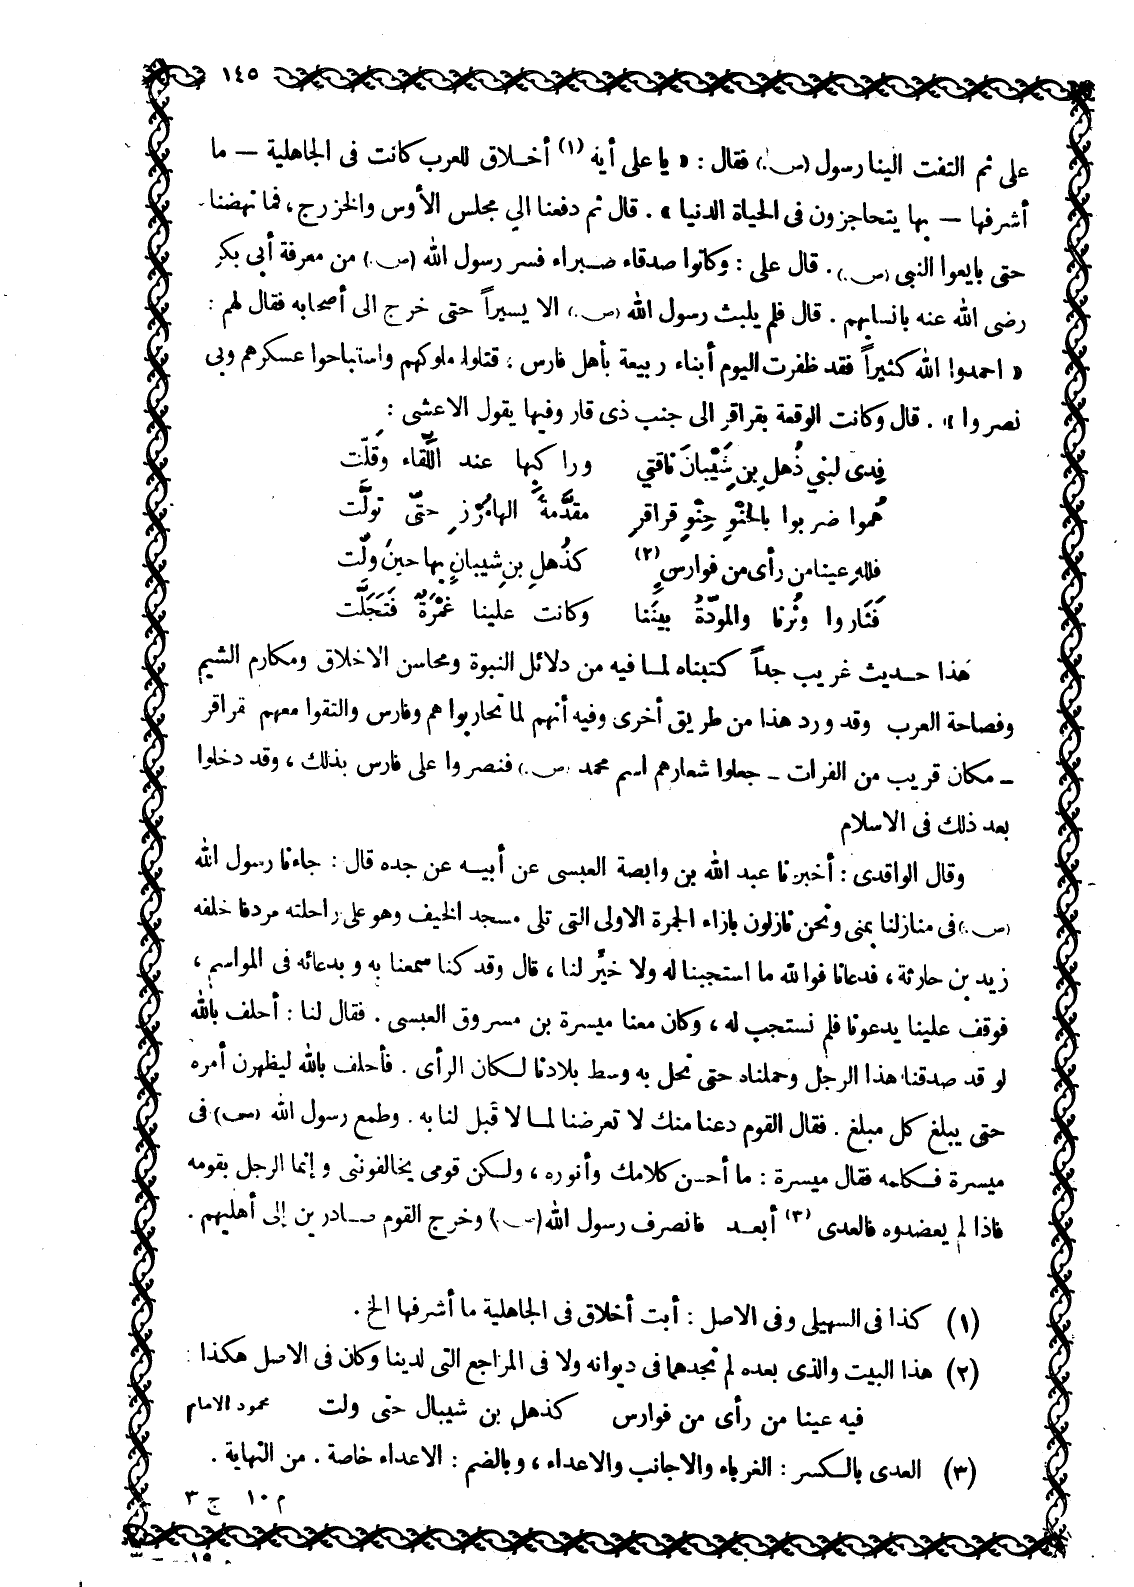 ١٤٥
على ثم التفت الينا رسول (ص.) فقال : « يا على أية (١) أخلاق للعرب كانت فى الجاهلية — ما
أشرفها — بها يتحاجزون فى الحياة الدنيا » . قال ثم دفعنا الي مجلس الأوس والخزرج ، فما نهضنا
حتى بايعوا النبى (ص.) . قال على : وكانوا صدقاء صبراء فسر رسول الله (ص.) من معرفة أبى بكر
رضى الله عنه بانسابهم . قال فلم يلبث رسول الله (ص.) الا يسيراً حتى خرج الى أصحابه فقال لهم :
« احمدوا الله كثيراً فقد ظفرت اليوم أبناء ربيعة بأهل فارس ؛ قتلوا ملوكهم واستباحوا عسكرهم وبى
نصروا » . قال وكانت الوقعة بقراقر الى جنب ذى قار وفيها يقول الاعشى :
فِدى لبني ذُهلِ بن شَيْبانَ ناقتي وراكبها عند اللِّقاء وَقَلّت
هُموا ضربوا بالحْنْوِ حِنْوِ قراقرٍ مقدَّمةَ الهامُرْزِ حتّى تولَّت
فلله عينا من رأى من فوارسٍ (٢) كذُهلِ بنِ شيبانٍ بها حينَ ولّت
فَثَاروا وثُرنا والمودّةُ بينَنا وكانت علينا غمْرَةٌ فَتَجَلَّت
هَذا حديث غريب جداً كتبناه لما فيه من دلائل النبوة ومحاسن الاخلاق ومكارم الشيم
وفصاحة العرب وقد ورد هذا من طريق أخرى وفيه أنهم لما تحاربوا هم وفارس والتقوا معهم بقراقر
ــ مكان قريب من الفرات ــ جعلوا شعارهم اسم محمد (ص.) فنصروا على فارس بذلك ، وقد دخلوا
بعد ذلك فى الاسلام
وقال الواقدى : أخبرنا عبد الله بن وابصة العبسى عن أبيه عن جده قال : جاءنا رسول الله
(ص.) فى منازلنا بمنى ونحن نازلون بازاء الجمرة الاولى التى تلى مسجد الخيف وهو على راحلته مردفا خلفه
زيد بن حارثة ، فدعانا فوالله ما استجبنا له ولا خيَّر لنا ، قال وقد كنا سمعنا به وبدعائه فى المواسم ،
فوقف علينا يدعونا فلم نستجب له ، وكان معنا ميسرة بن مسروق العبسى . فقال لنا : أحلف بالله
لو قد صدقنا هذا الرجل وحملناه حتى نحل به وسط بلادنا لكان الرأى . فأحلف بالله ليظهرن أمره
حتى يبلغ كل مبلغ . فقال القوم دعنا منك لا تعرضنا لما لا قِبل لنا به . وطمع رسول الله (ص) فى
ميسرة فكلمه فقال ميسرة : ما أحسن كلامك وأنوره ، ولكن قومى يخالفوننى وإنما الرجل بقومه
فاذا لم يعضدوه فالعدى (٣) أبعد فانصرف رسول الله (ص.) وخرج القوم صادرين إلى أهليهم .
(١) كذا فى السهيلى وفى الاصل : أبت أخلاق فى الجاهلية ما أشرفها الخ .
(٢) هذا البيت والذى بعده لم نجدهما فى ديوانه ولا فى المراجع التى لدينا وكان فى الاصل هكذا :
فيه عينا من رأى من فوارس كذهل بن شيبال حتى ولت محمود الامام
(٣) العدى بالكسر : الغرباء والاجانب والاعداء ، وبالضم : الاعداء خاصة . من النهاية .
م ١٠ ج ٣